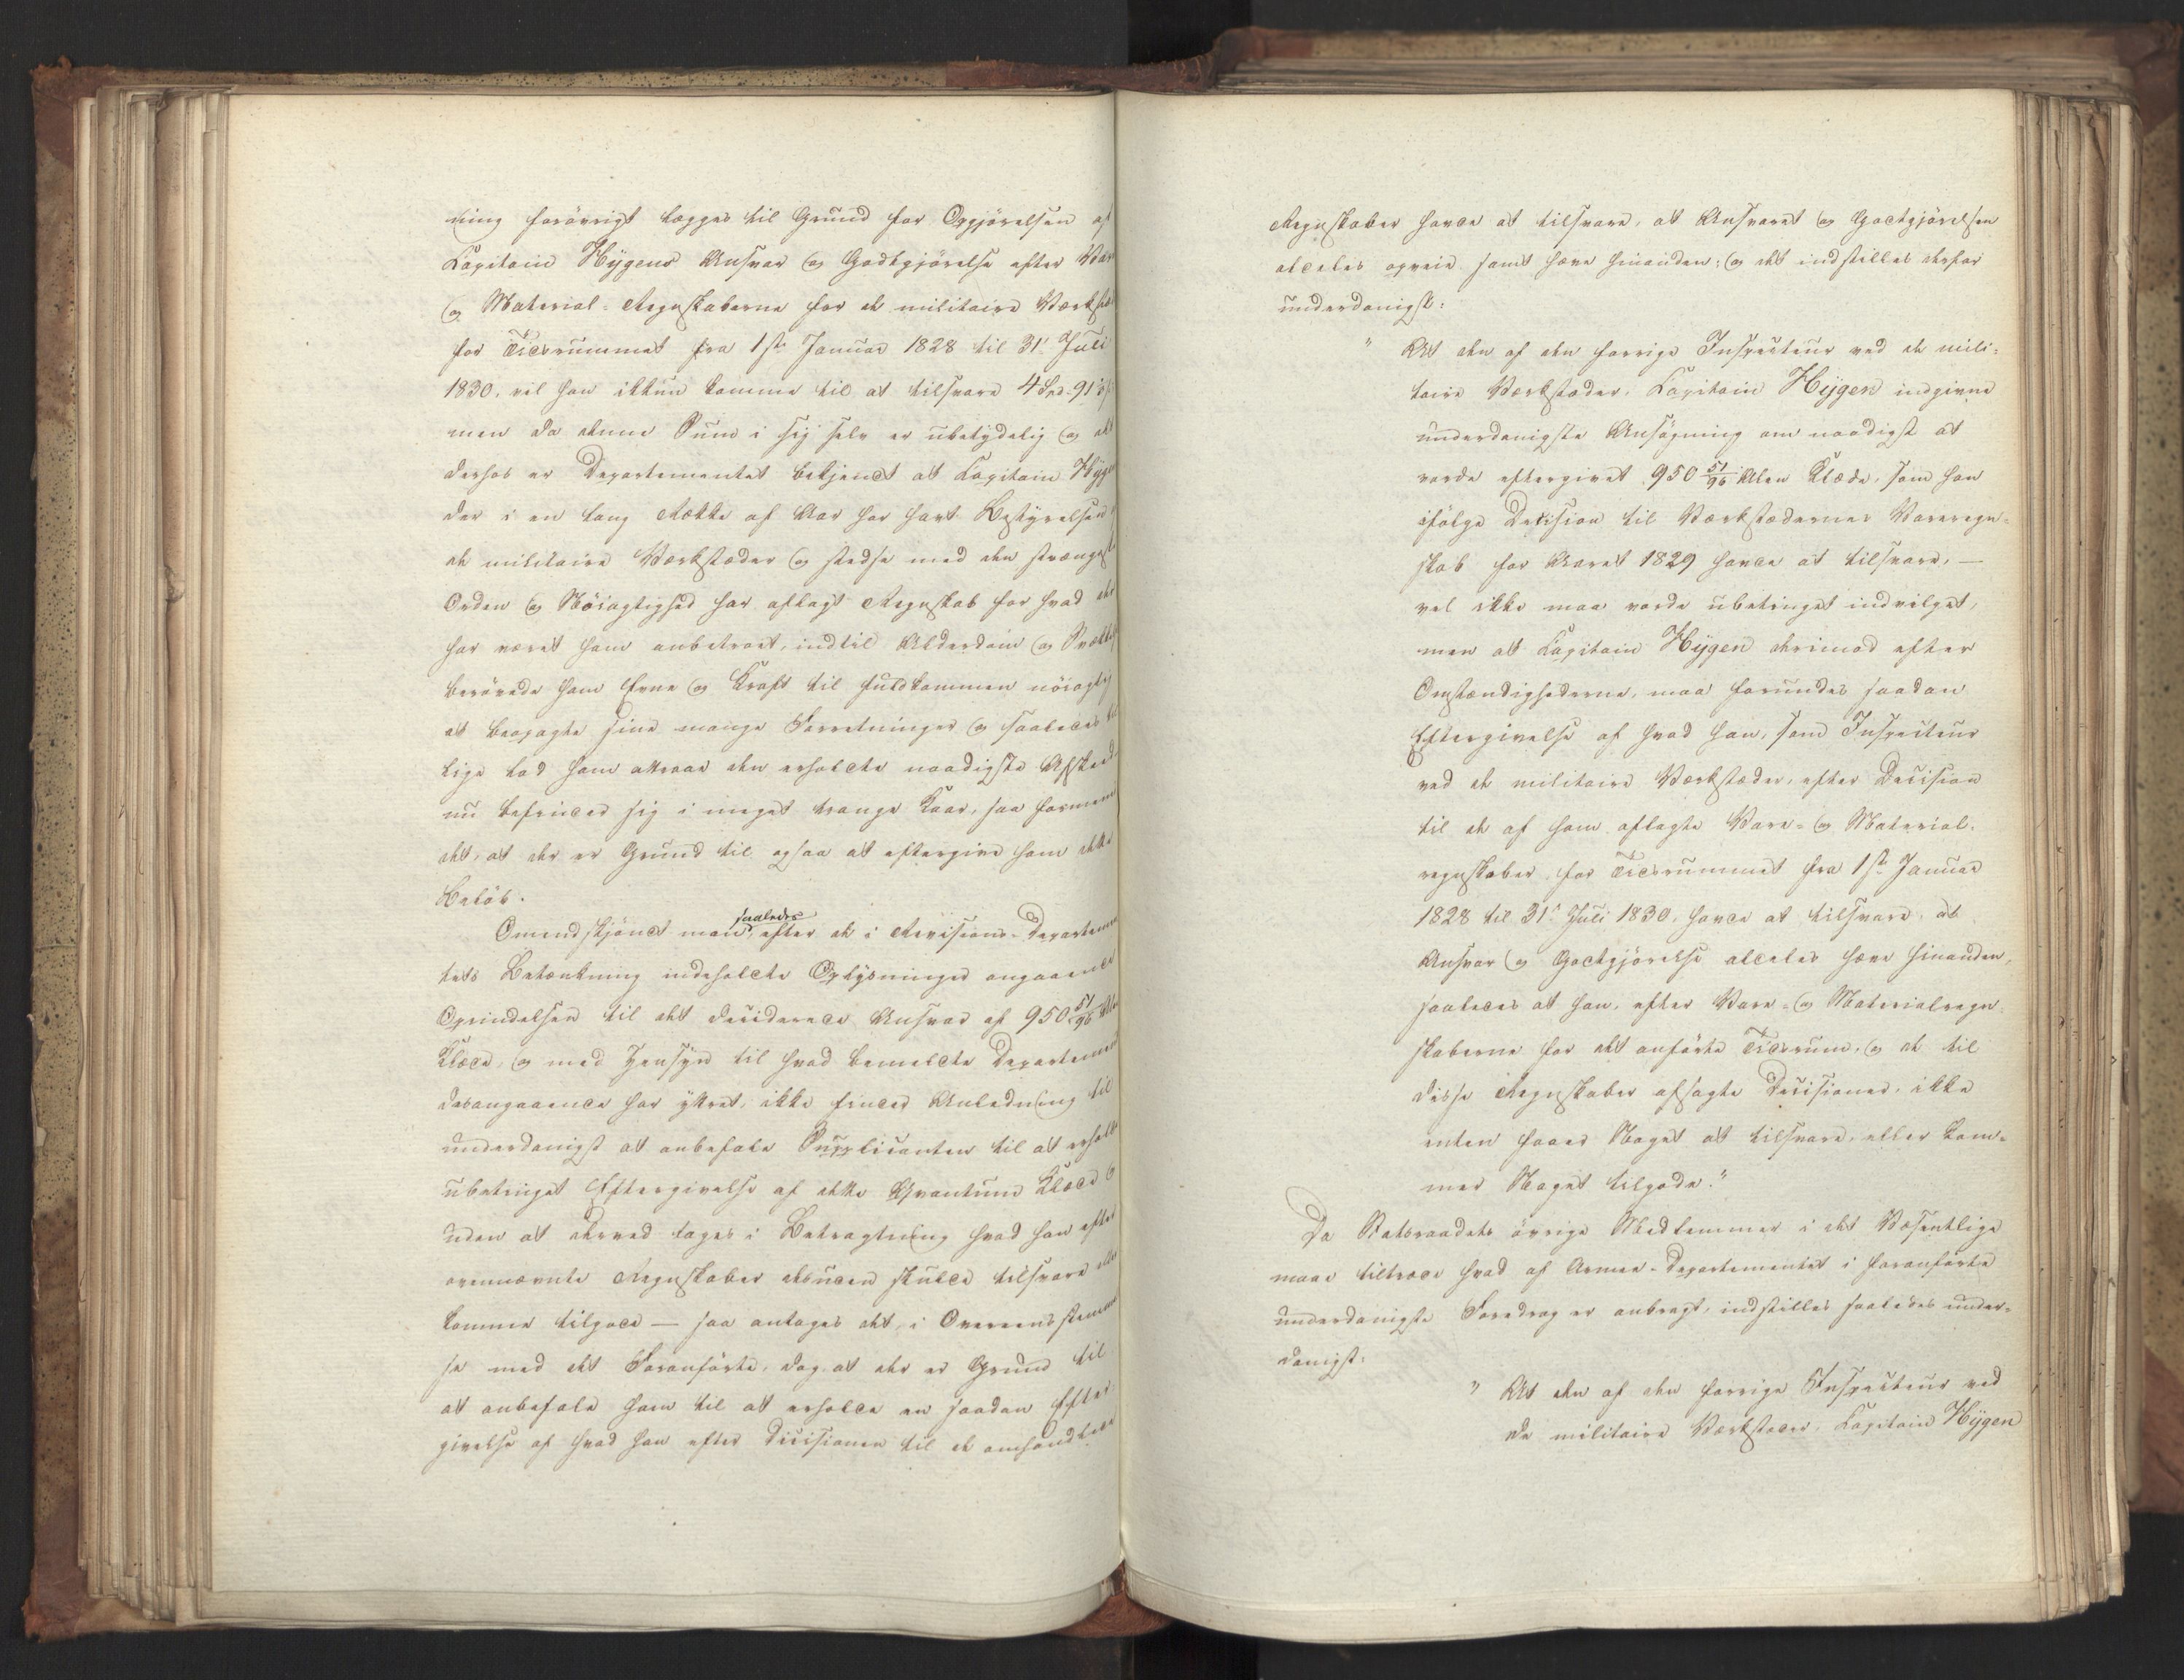 ning forövrigt lægges til Grund for Opgjörelsen af
Capitain Hÿgens Ansvar og Godtgjörelse efter Vare
og Material-Regnskaberne for de militaire Værkstæ
for Tidsrummet fra 1ste Januar 1828 til 31' Juli
1830, vil han ikkun komme til at tilsvare 4 Spd. 91 s
men da denne Sum i sig selv er ubetydelig og det
derhos er Departementet bekjendt at Capitain Hÿgen
der i en lang Række af Aar har havt Bestyrelsen
de militaire Værkstæder og stedse med den strængest
Orden og Nöiagtighed har aflagt Regnskab for hvad der
har været ham anbetroet, indtil Alderdom og Svækk
berövede ham Evne og Kraft til fuldkommen nöiagtig
at beopagte sine mange Forretninger og saaledes
lige lod ham attraae den erholdte naadigste Afsked
nu befinder sig i meget trange Kaar, saa formeen
det, at der er Grund til ogsaa at eftergive ham dette
Belöb.
Omendskjöndt man saaledes, efter de i Revisions-Departemen
tets Betænkning indeholdte Oplysninger angaaende
Oprindelsen til det deciderede Ansvar af 950 51/96 Alen
Klæde, og med Hensÿn til hvad bemeldte Departement
desangaaende har ÿttret, ikke finder Anledning til
underdanigst at anbefale Supplicanten til at erholde
ubetinget Eftergivelse af dette Qvantum Klæde
uden at derved tages i Betragtning hvad han efter
ovennævnte Regnskaber desuden skulde tilsvare eller
kommer tilgode — saa antages det, i Overeensstemmel
se med det Foranförte, dog at der er Grund til
at anbefale ham til at erholde en saadan Efter
givelse af hvad han efter Decisionen til de omhandlede
Regnskaber havde at tilsvare, at Ansvaret og Godtgjörelsen
aldeles opveie samt hæve hinanden; og det indstilles derfor
underdanigst:
" At den af den forrige Inspecteur ved de mili-
taire Værkstæder, Capitain Hÿgen indgivne
underdanigste Ansögning om naadigst at
vorde eftergivet 950 51/96 Alen Klæde, som han
ifölge Decision til Værkstædernes Vareregn-
skab for Aaret 1829 havde at tilsvare, —
vel ikke maa vorde ubetinget indvilget,
men at Capitain Hÿgen derimod efter
Omstændighederne, maa forundes saadan
Eftergivelse af hvad han, som Inspecteur
ved de militaire Værkstæder, efter Decision
til de af ham aflagte Vare- og Material-
regnskaber for Tidsrummet fra 1ste Januar
1828 til 31' Juli 1830, havde at tilsvare, at
Ansvar og Godtgjörelse aldeles hæve hinanden,
saaledes at han, efter Vare- og Materialregn-
skaberne for det anförte Tidsrum, og de til
disse Regnskaber afsagte Decisioner, ikke
enten faaer Noget at tilsvare, eller kom-
mer Noget tilgode."
Da Statsraadets övrige Medlemmer i det Væsentlige
maae tiltræde hvad af Armee-Departementet i foranförte
underdanigste Foredrag er anbragt, indstilles saaledes under-
danigst:
" At den af den forrige Inspecteur ved
de militaire Værkstæder, Capitain Hÿgen